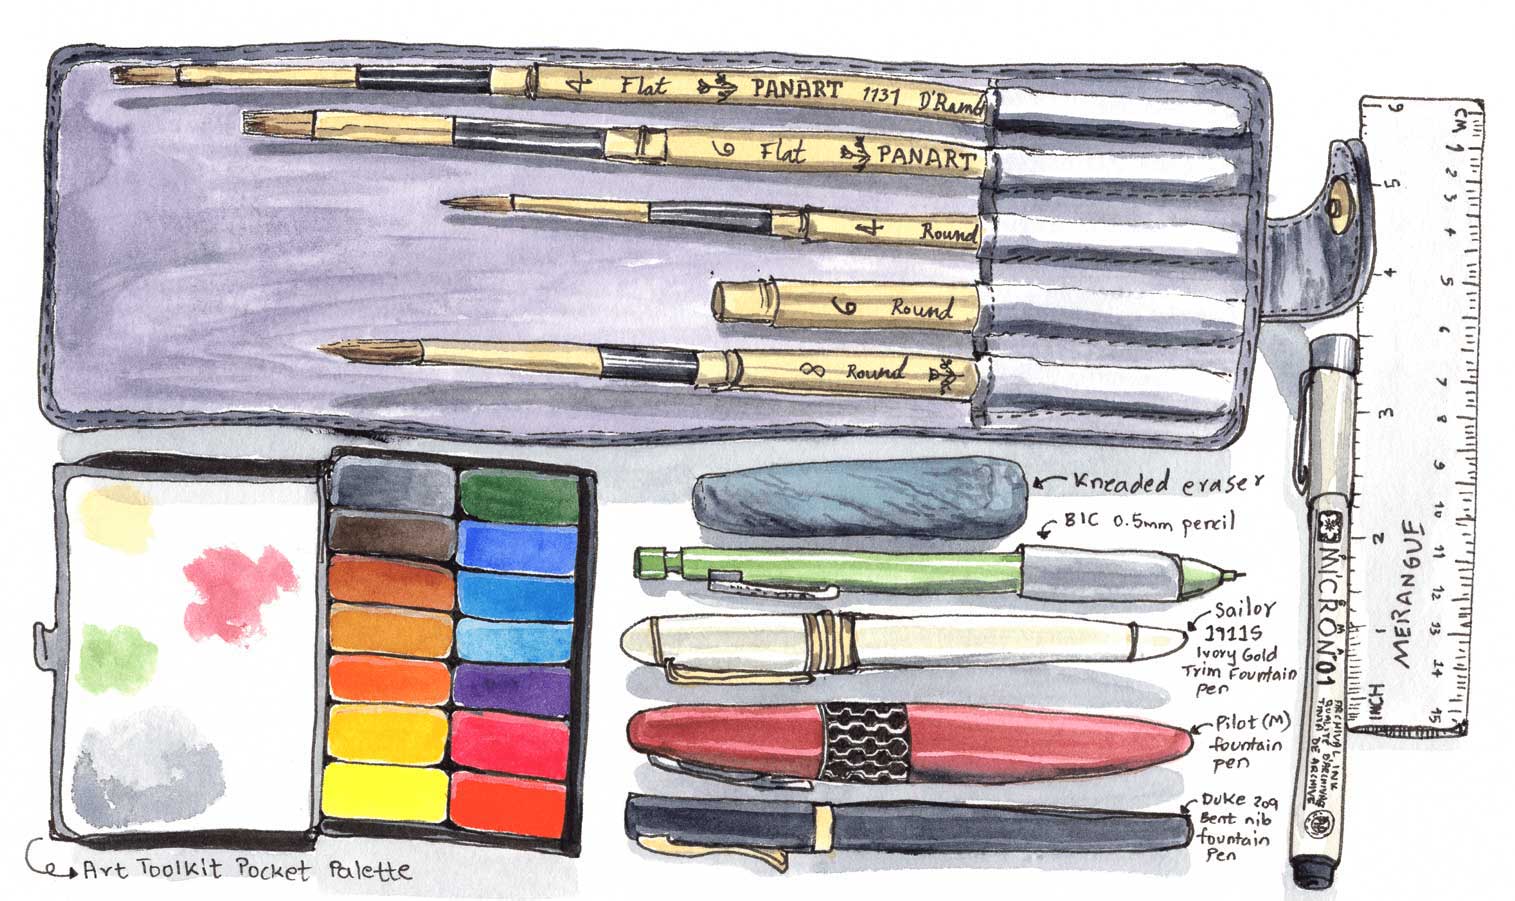 4 Flat PANART 1131 D'Ramb
6 Flat PANART
4 Round
6 Round
8 Round
Kneaded eraser
BIC 0.5mm pencil
Sailor
1911S
Ivory Gold
Trim Fountain
pen
Pilot (M)
fountain
pen
Duke 209
Bent nib
fountain
Pen
Art Toolkit Pocket Palette
MICRON 01
ARCHIVAL INK
CM 1 2 3 4 5 6 7 8 9 10 11 12 13 14 15
MERANGUE
INCH 1 2 3 4 5 6